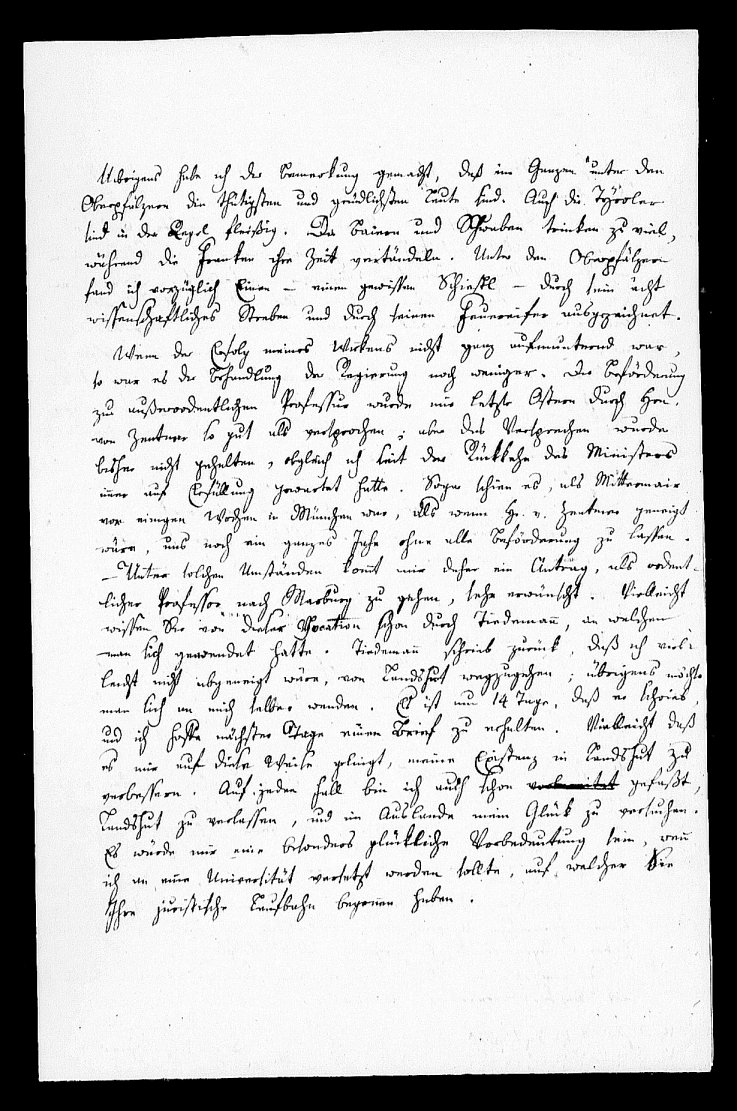 Uibrigens habe ich die Bemerkung gemacht, daß im Ganzen unter den
Oberpfälzern die thätigsten und gründlichsten Leute sind. Auch die Tyroler
sind in der Regel fleißig. Die Baiern und Schwaben trinken zu viel,
während die Franken ihre Zeit vertändeln. Unter den Oberpfälzern
fand ich vorzüglich Einen – einen gewissen Schiestl – durch sein ächt
wissenschaftliches Streben und durch seinen Feuereifer ausgezeichnet.
Wenn der Erfolg meines Wirkens nicht ganz aufmunternd war,
so war es die Behandlung der Regierung noch weniger. Die Beförderung
zur außerordentlichen Professur wurde mir letzte Ostern durch Hrn.
von Zentner so gut als versprochen; aber das Versprechen wurde
bisher nicht gehalten, obgleich ich seit der Rückkehr des Ministers
immer auf Erfüllung gewartet hatte. Sogar schien es, als Mittermair
vor einigen Wochen in München war, als wenn Hr. v. Zentner geneigt
wäre, uns noch ein ganzes Jahr ohne alle Beförderung zu lassen.
– Unter solchen Umständen komt mir daher ein Antrag, als ordent-
licher Professor nach Marburg zu gehen, sehr erwünscht. Vielleicht
wissen Sie von dieser Vocation schon durch Tiedemann, an welchen
man sich gewendet hatte. Tiedemann schrieb zurück, daß ich viel-
leicht nicht abgeneigt wäre, von Landshut wegzugehen; übrigens möchte
man sich an mich selber wenden. Es ist nun 14 Tage, daß er schrieb,
und ich hoffe nächster Tage einen Brief zu erhalten. Vielleicht daß
es mir auf diese Weise gelingt, meine Existenz in Landshut zu
verbessern. Auf jeden Fall bin ich auch schon vorbereitet gefaßt,
Landshut zu verlassen, und im Auslande mein Glück zu versuchen.
Es würde mir eine besonders glückliche Vorbedeutung sein, wenn
ich an eine Universität versetzt werden sollte, auf welcher Sie
Ihre juristische Laufbahn begonnen haben.